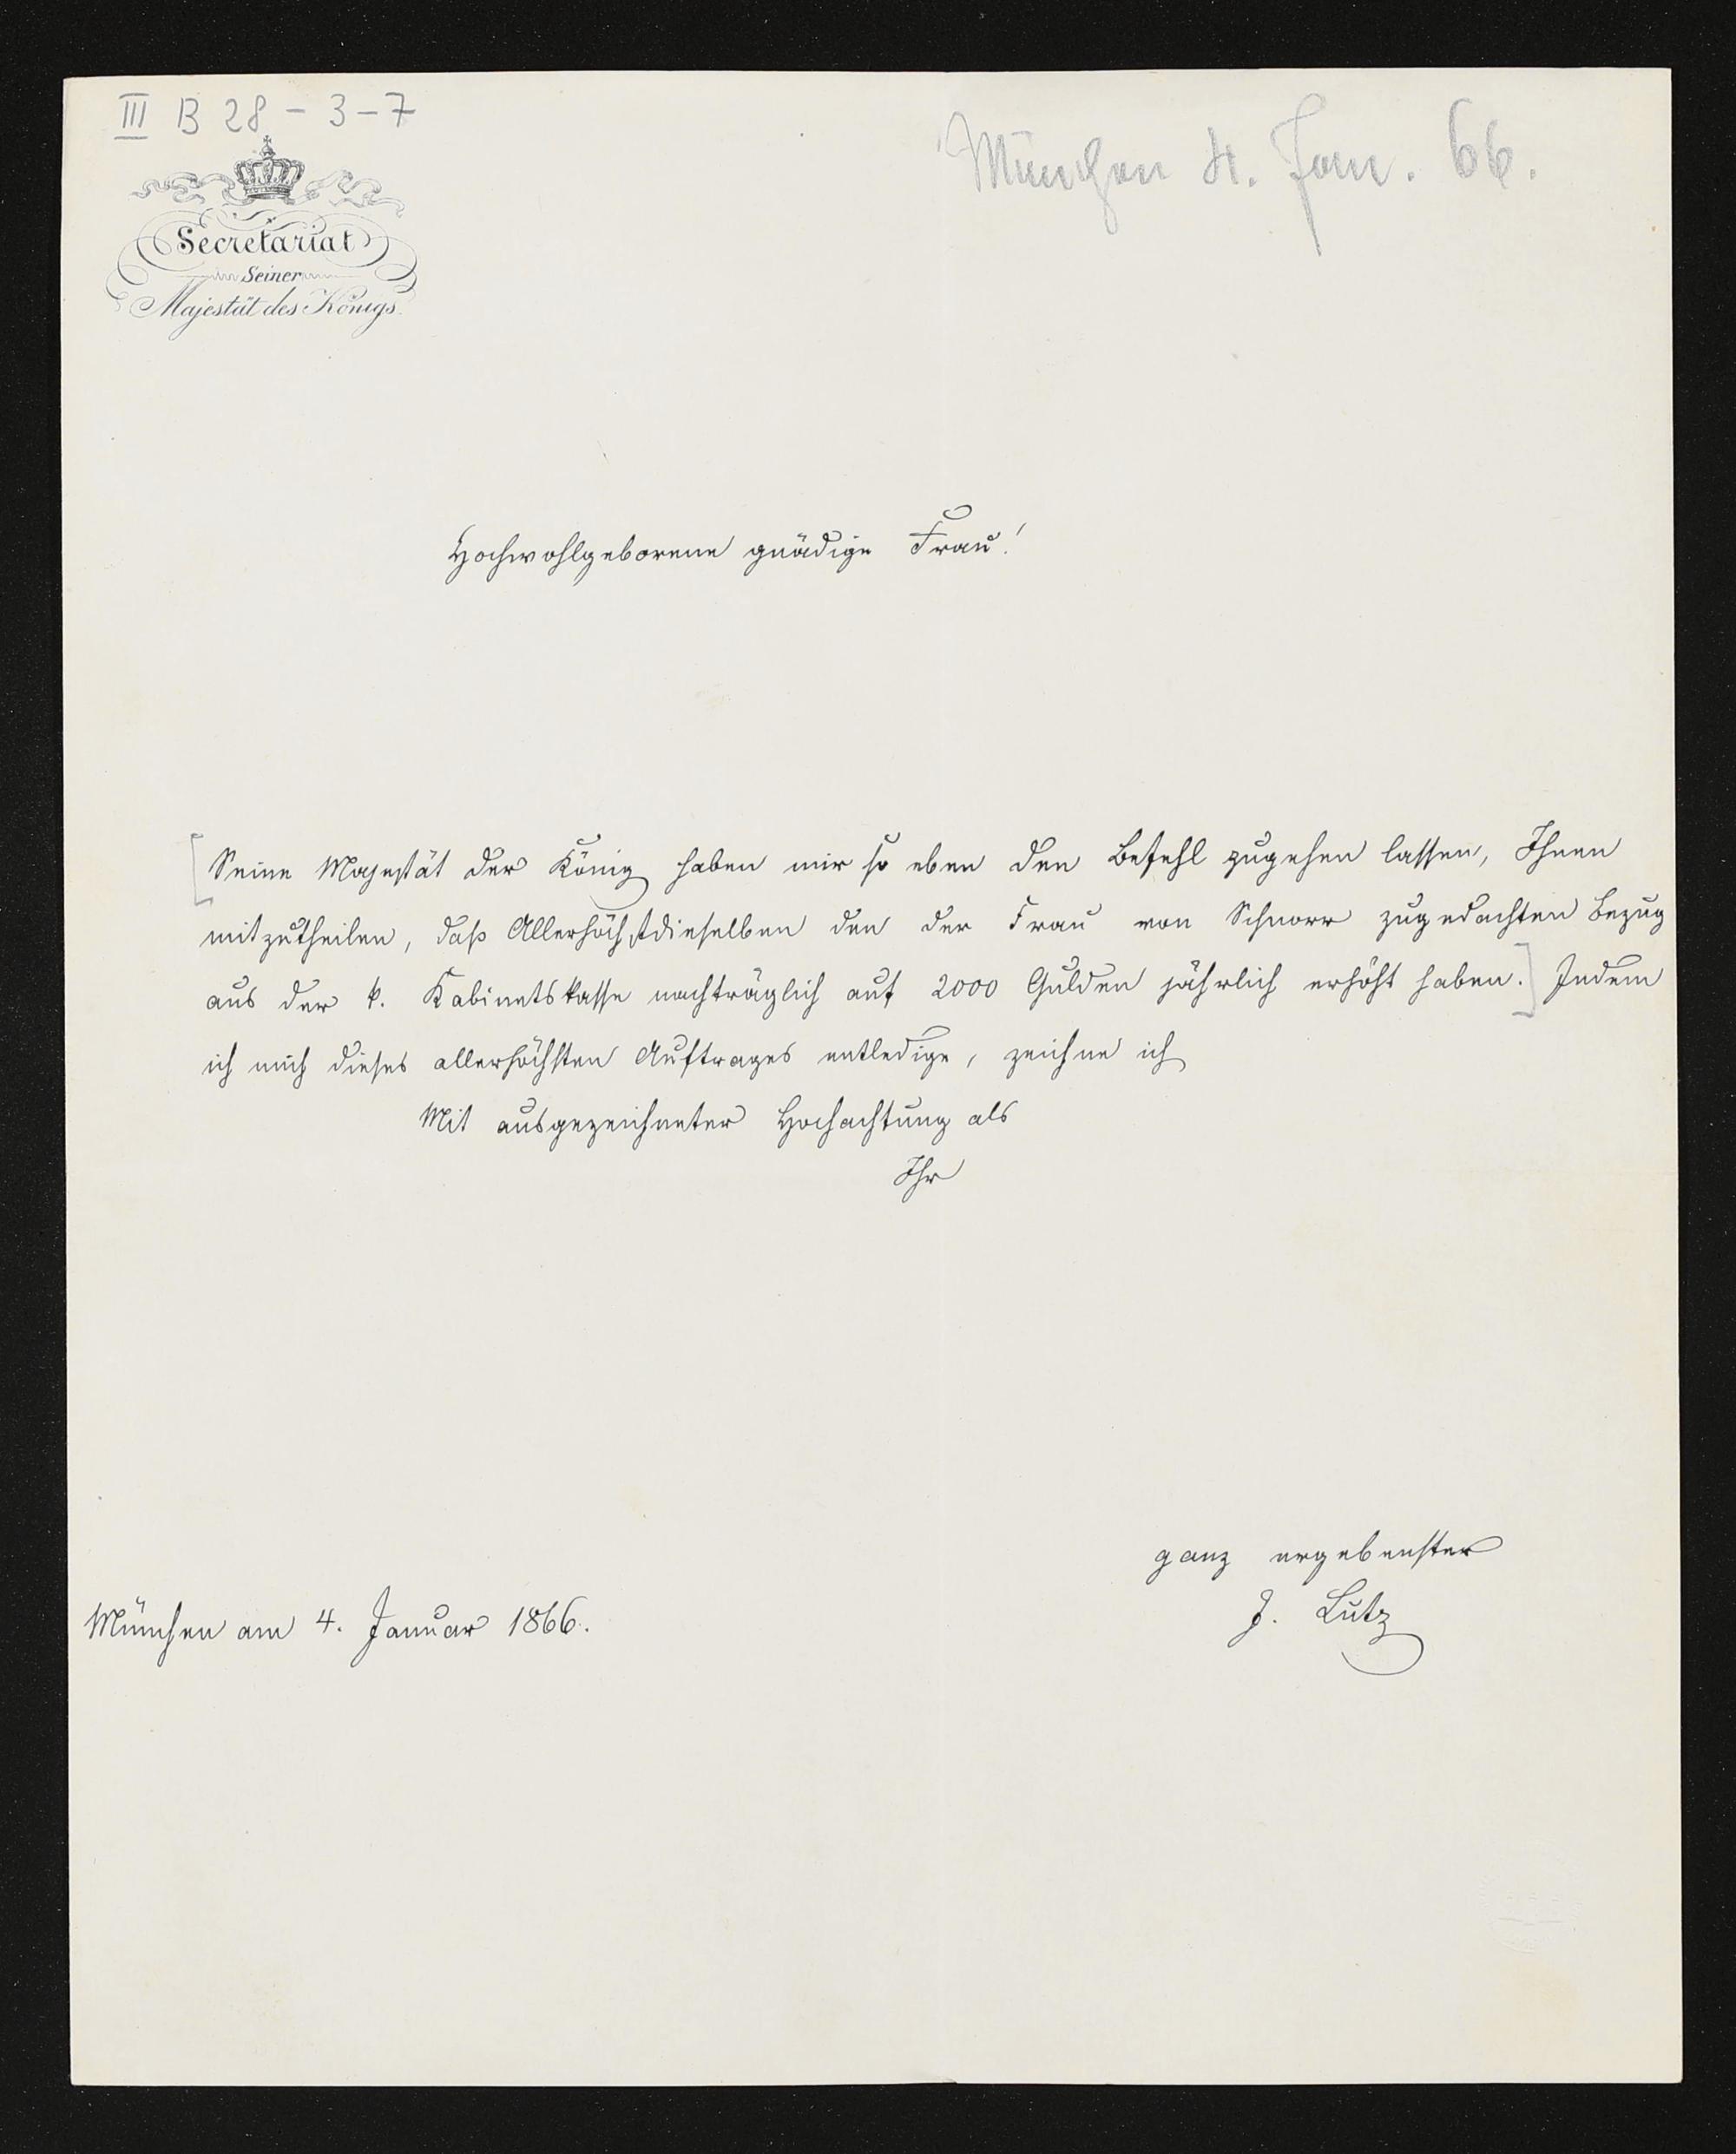 III B 28 - 3 - 7
München 4. Jan. 66.
Secretariat
Seiner
Majestät des Königs.
Hochwohlgeborene gnädige Frau!
[Seine Majestät der König haben mir so eben den Befehl zugehen lassen, Ihnen
mitzutheilen, daß Allerhöchstdieselben den der Frau von Schnorr zugedachten Bezug
aus der k. Kabinetskasse nachträglich auf 2000 Gulden jährlich erhöht haben.] Indem
ich mich dieses allerhöchsten Auftrages entledige, zeichne ich
Mit ausgezeichneter Hochachtung als
Ihr
ganz ergebenster
J. Lutz
München am 4. Januar 1866.